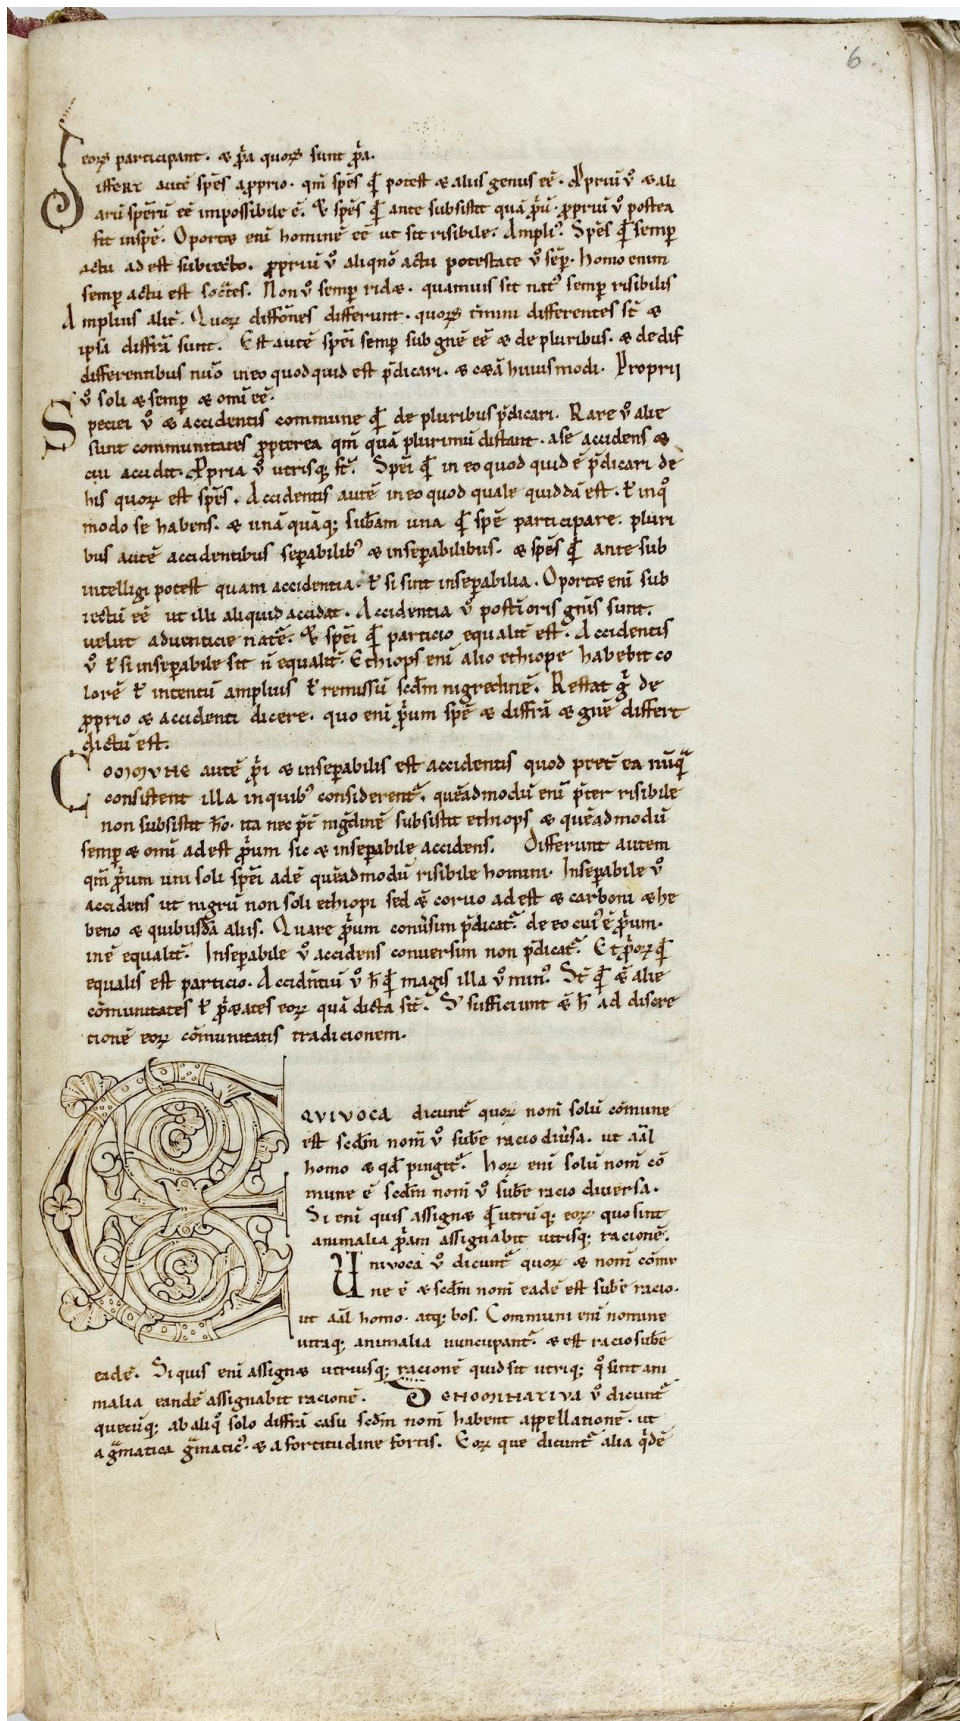 6.
eorꝝ participant. & ꝓ̃a quorꝝ sunt ꝓ̃a.
iffert autē sp̄es a proprio. qm̄ sp̄es q̄ potest & aliis genus eē. Propriū v̊ & ali
arū sp̄erū eē impossibile ē. & sp̄es q̄ ante subsistit quā ꝓ̃ū. propriū v̊ postea
fit in spē. Oport& enī hominē eē ut sit risibile. Ampliꝰ. Sp̄es q̄ semꝑ
actu ad est subiecto. ꝓpriū v̊ aliqn̄o actu potestate v̊ sēꝑ. homo enim
semꝑ actu est socr̄tes. Non v̊ semꝑ rid&. quamuis sit natꝰ semꝑ risibilis
Amplius alit̄. Quorꝝ diffōnes differunt. quorꝝ t̄mini differentes st̄ &
ipsa diffr̄a sunt. Est autē spēi semꝑ sub gn̄e eē & de pluribus. & de dif
differentibus nūo in eo quod quid est p̄dicari. & c&ā huius modi. Proprii
v̊ soli & semꝑ & omī eē.
Speciei v̊ & accidentis commune q̄ de pluribus p̄dicari. Rare v̊ alie
sunt communitates ꝓpterea qm̄ quā plurimū distant. a se accidens &
cui accidit. Propria v̊ utrisq; st̄. Spēi q̄ in eo quod quid ē p̄dicari de
his quorꝝ est sp̄es. Accidentis autē in eo quod quale quiddā est. ł inq̊
modo se habens. & unā quāq; sub̄am una q̄ spē participare. pluri
bus autē accidentibus seꝑabilibꝰ & inseꝑabilibus. & sp̄es q̄ ante sub
intelligi potest quam accidentia. ł si sint inseꝑabilia. Oport& enī sub
iectū eē ut illi aliquid accidat. Accidentia v̊ postīoris gn̄is sunt.
velut adventicie natē. & spēi q̄ participo equalit̄ est. Accidentis
v̊ ł si inseꝑabile sit n̄ equalit̄. Ethiops enī alio ethiope habebit co
lorē ł intentū amplius ł remissū scd̄m nigredinē. Restat g̊ de
ꝓprio & accidenti dicere. quo enī ꝓ̃um spē & diffr̄a & gn̄e differt
dictū est.
Commune autē ꝓ̃i & inseꝑabilis est accidentis quod pret̄ ea nūq̄
consistent illa in quibꝰ considerent̄. quēadmodū enī p̄ter risibile
non subsistit h̄o. ita nec p̄t̄ nig̊dinē subsistit ethiops & quēadmodū
semꝑ & omī ad est ꝓ̃um sic & inseꝑabile accidens. Differunt autem
qm̄ ꝓ̃um uni soli spēi adē quēadmodū risibile homini. Inseꝑabile v̊
accidens ut nigrū non soli ethiopi sed & coruo ad est & carboni & he
beno & quibusdā aliis. Quare ꝓ̃um conv̄sim p̄dicat̄. de eo cuiꝰ ē ꝓ̃um.
in ē equalit̄. Inseꝑabile v̊ accidens conversim non p̄dicat̄. Et ꝓ̃orꝝ q̄
equalis est particio. Accidn̄tiū v̊ h̄ q̄ magis illa v̊ minꝰ. St̄ q̄ & alie
cōmunitates ł ꝓ̃&ates eorꝝ quā dicta st̄. S; sufficiunt & h̄ ad discre
tionē eorꝝ cōmunitatis tradicionem.
Eqvivoca dicunt̄ quorꝝ nom̄ solū cōmune
est scd̄m nom̄ v̊ sub̄e racio div̄sa. ut aāl
homo & qd̄ pingit̄. Horꝝ enī solū nom̄ cō
mune ē scd̄m nom̄ v̊ sub̄e racio diversa.
Si enī quis assign& q̄ utrūq; eorꝝ quo sint
animalia ꝓ̃am assignabit utrisq; racionē.
Univoca v̊ dicunt̄ quorꝝ & nom̄ cōmv
ne ē & scd̄m nom̄ eadē est sub̄e racio.
ut aāl homo. atq; bos. Communi enī nomine
utraq; animalia nuncupant̄. & est racio sub̄e
eadē. Si quis enī assign& utriusq; racionē quid sit utriq; q̊ sint ani
malia eandē assignabit racionē. Denominativa v̊ dicunt̄
quecūq; ab aliq̊ solo diffr̄a casu scd̄m nom̄ habent appellationē. ut
a g̃matica g̃maticꝰ. & a fortitudine fortis. Eorꝝ que dicunt̄ alia q̄dē